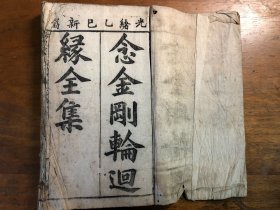 光緒乙巳新
念金剛輪迴
緣全集